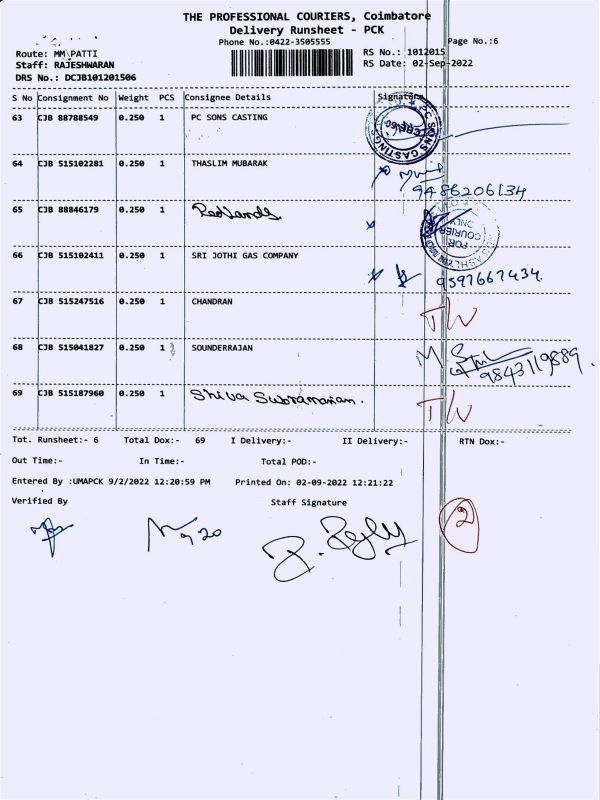 THE PROFESSIONAL COURIERS, Coimbatore
Delivery Runsheet - PCK
Phone No.:0422-3505555
Page No.:6
Route: MM PATTI
RS No.: 1012015
Staff: RAJESHWARAN
RS Date: 02-Sep-2022
DRS No.: DCJB101201506
S No Consignment No Weight PCS Consignee Details Signature
63 CJB 88788549 0.250 1 PC SONS CASTING
PC SONS CASTINGS
64 CJB 515102281 0.250 1 THASLIM MUBARAK
9486206134
65 CJB 88846179 0.250 1 Redlands
FOR COURIER ONLY
66 CJB 515102411 0.250 1 SRI JOTHI GAS COMPANY
9597667434
67 CJB 515247516 0.250 1 CHANDRAN T/W
68 CJB 515041827 0.250 1 SOUNDERRAJAN
9843119889
69 CJB 515187960 0.250 1 Shiva Subramanian. T/W
Tot. Runsheet:- 6 Total Dox:- 69 I Delivery:- II Delivery:- RTN Dox:-
Out Time:- In Time:- Total POD:-
Entered By :UMAPCK 9/2/2022 12:20:59 PM Printed On: 02-09-2022 12:21:22
Verified By Staff Signature
2